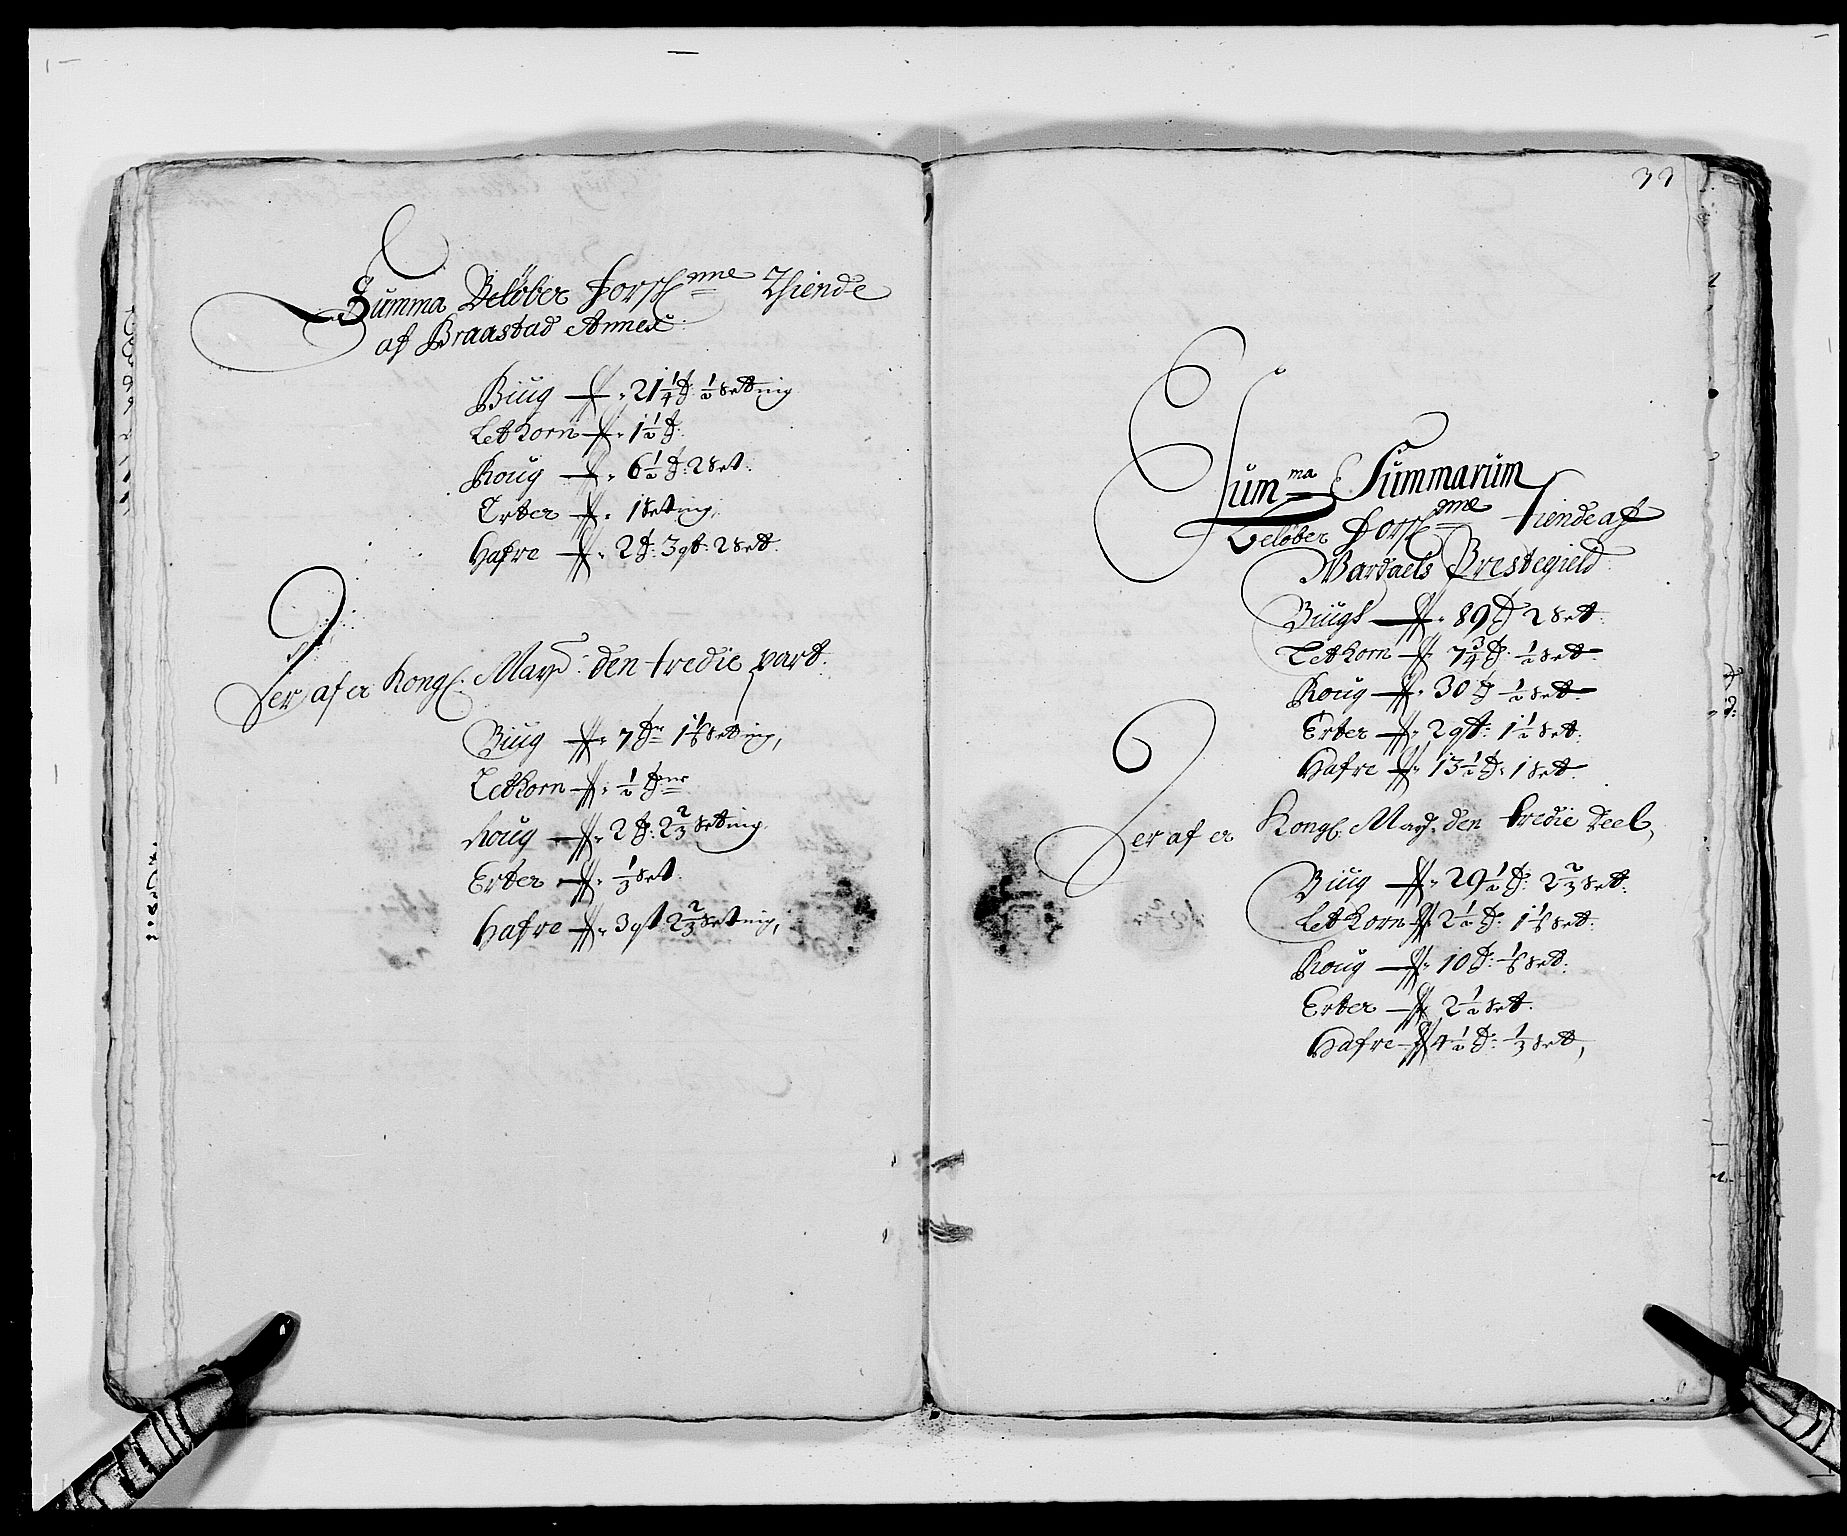 Summa Beløber forschne Thiende
af Braastad Annex
Biug — 21 1/4 d: 1/2 Setting
Letkorn — 1 1/2 d:
Roug — 6 1/2 d: 2 Set:
Erter — 1 Seting,
Hafre — 2 d: 3 qt: 2 Sett:
Her af er Kongl: Mayd: den tredie part:
Biug — 7 dr 1 1/6 Setting,
Letkorn — 1/2 dnr
Roug — 2 d: 2 2/3 Setting
Erter — 1/3 Set:
Hafre — 3 qt: 2 2/3 Setning,
33
Summa Summarum
Beløber forschne Tiende af
Wardaels Prestegield
Biugh — 89 d 2 Sett:
Letkorn — 7 3/4 d: 1/2 Sett
Roug — 30 d 1/2 Sett
Erter — 2 qt: 1 1/2 Sett:
Hafre — 13 1/2 d: 1 Sett:
Her af er Kongl: Mayt: den tredie Deel,
Biug — 29 1/2 d: 2 2/3 Sett:
Letkorn — 2 1/2 d: 1 1/6 Sett:
Roug — 10 d: 1/6 Sett:
Erter — 2 1/2 Sett:
Hafre — 4 1/2 d: 1/3 Sett,